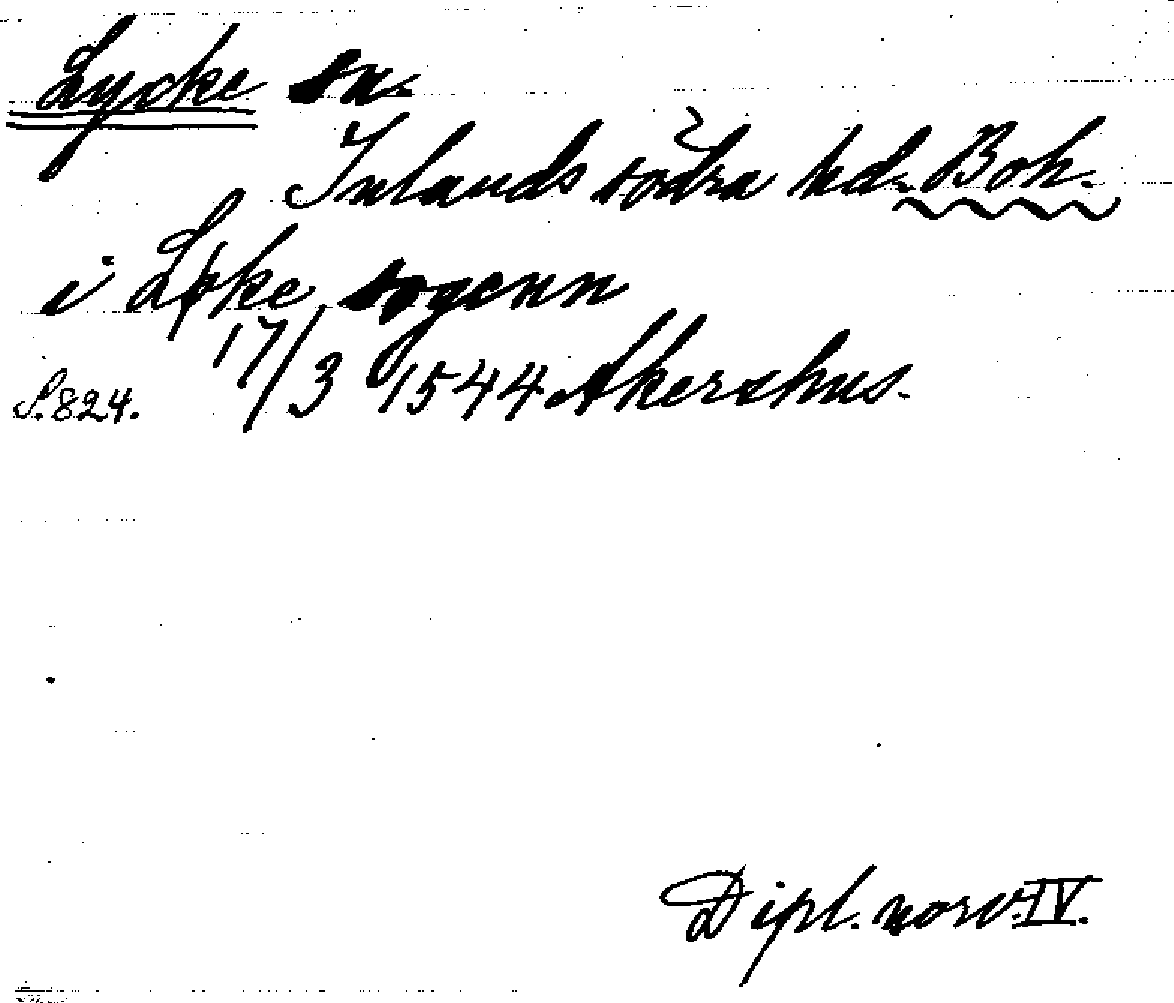 Lycke sn.
Inlands södra hd. Boh.
i Løke sogenn
S. 824. 17/3 1544 Akershus.
Dipl. norv. IV.